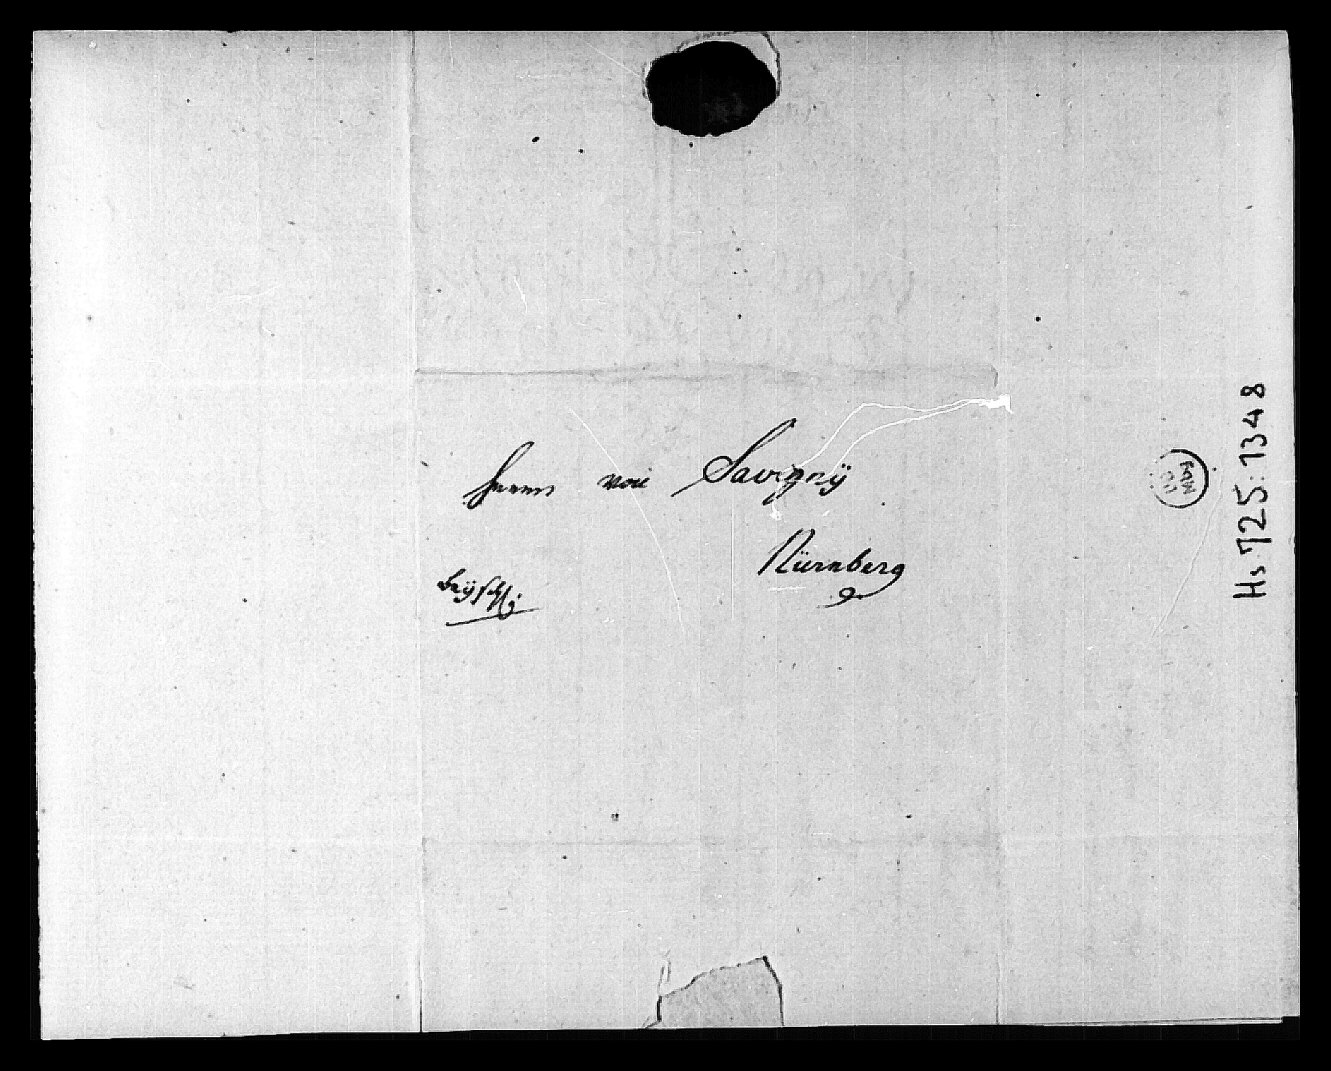 Herrn von Savignÿ
Nürnberg
beÿschl:
Hs 725: 1348